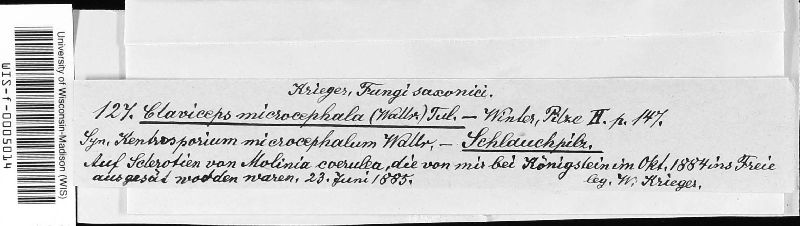 University of Wisconsin-Madison (WIS)
WIS-f-0005014
Krieger, Fungi saxonici.
127. Claviceps microcephala (Wallr.) Tul. — Winter, Pilze II. p. 147.
Syn. Kentrosporium microcephalum Wallr. — Schlauchpilz.
Auf Sclerotien von Molinia coerulea, die von mir bei Königstein im Okt. 1884 ins Freie
ausgesät worden waren. 23. Juni 1885. leg. W. Krieger.